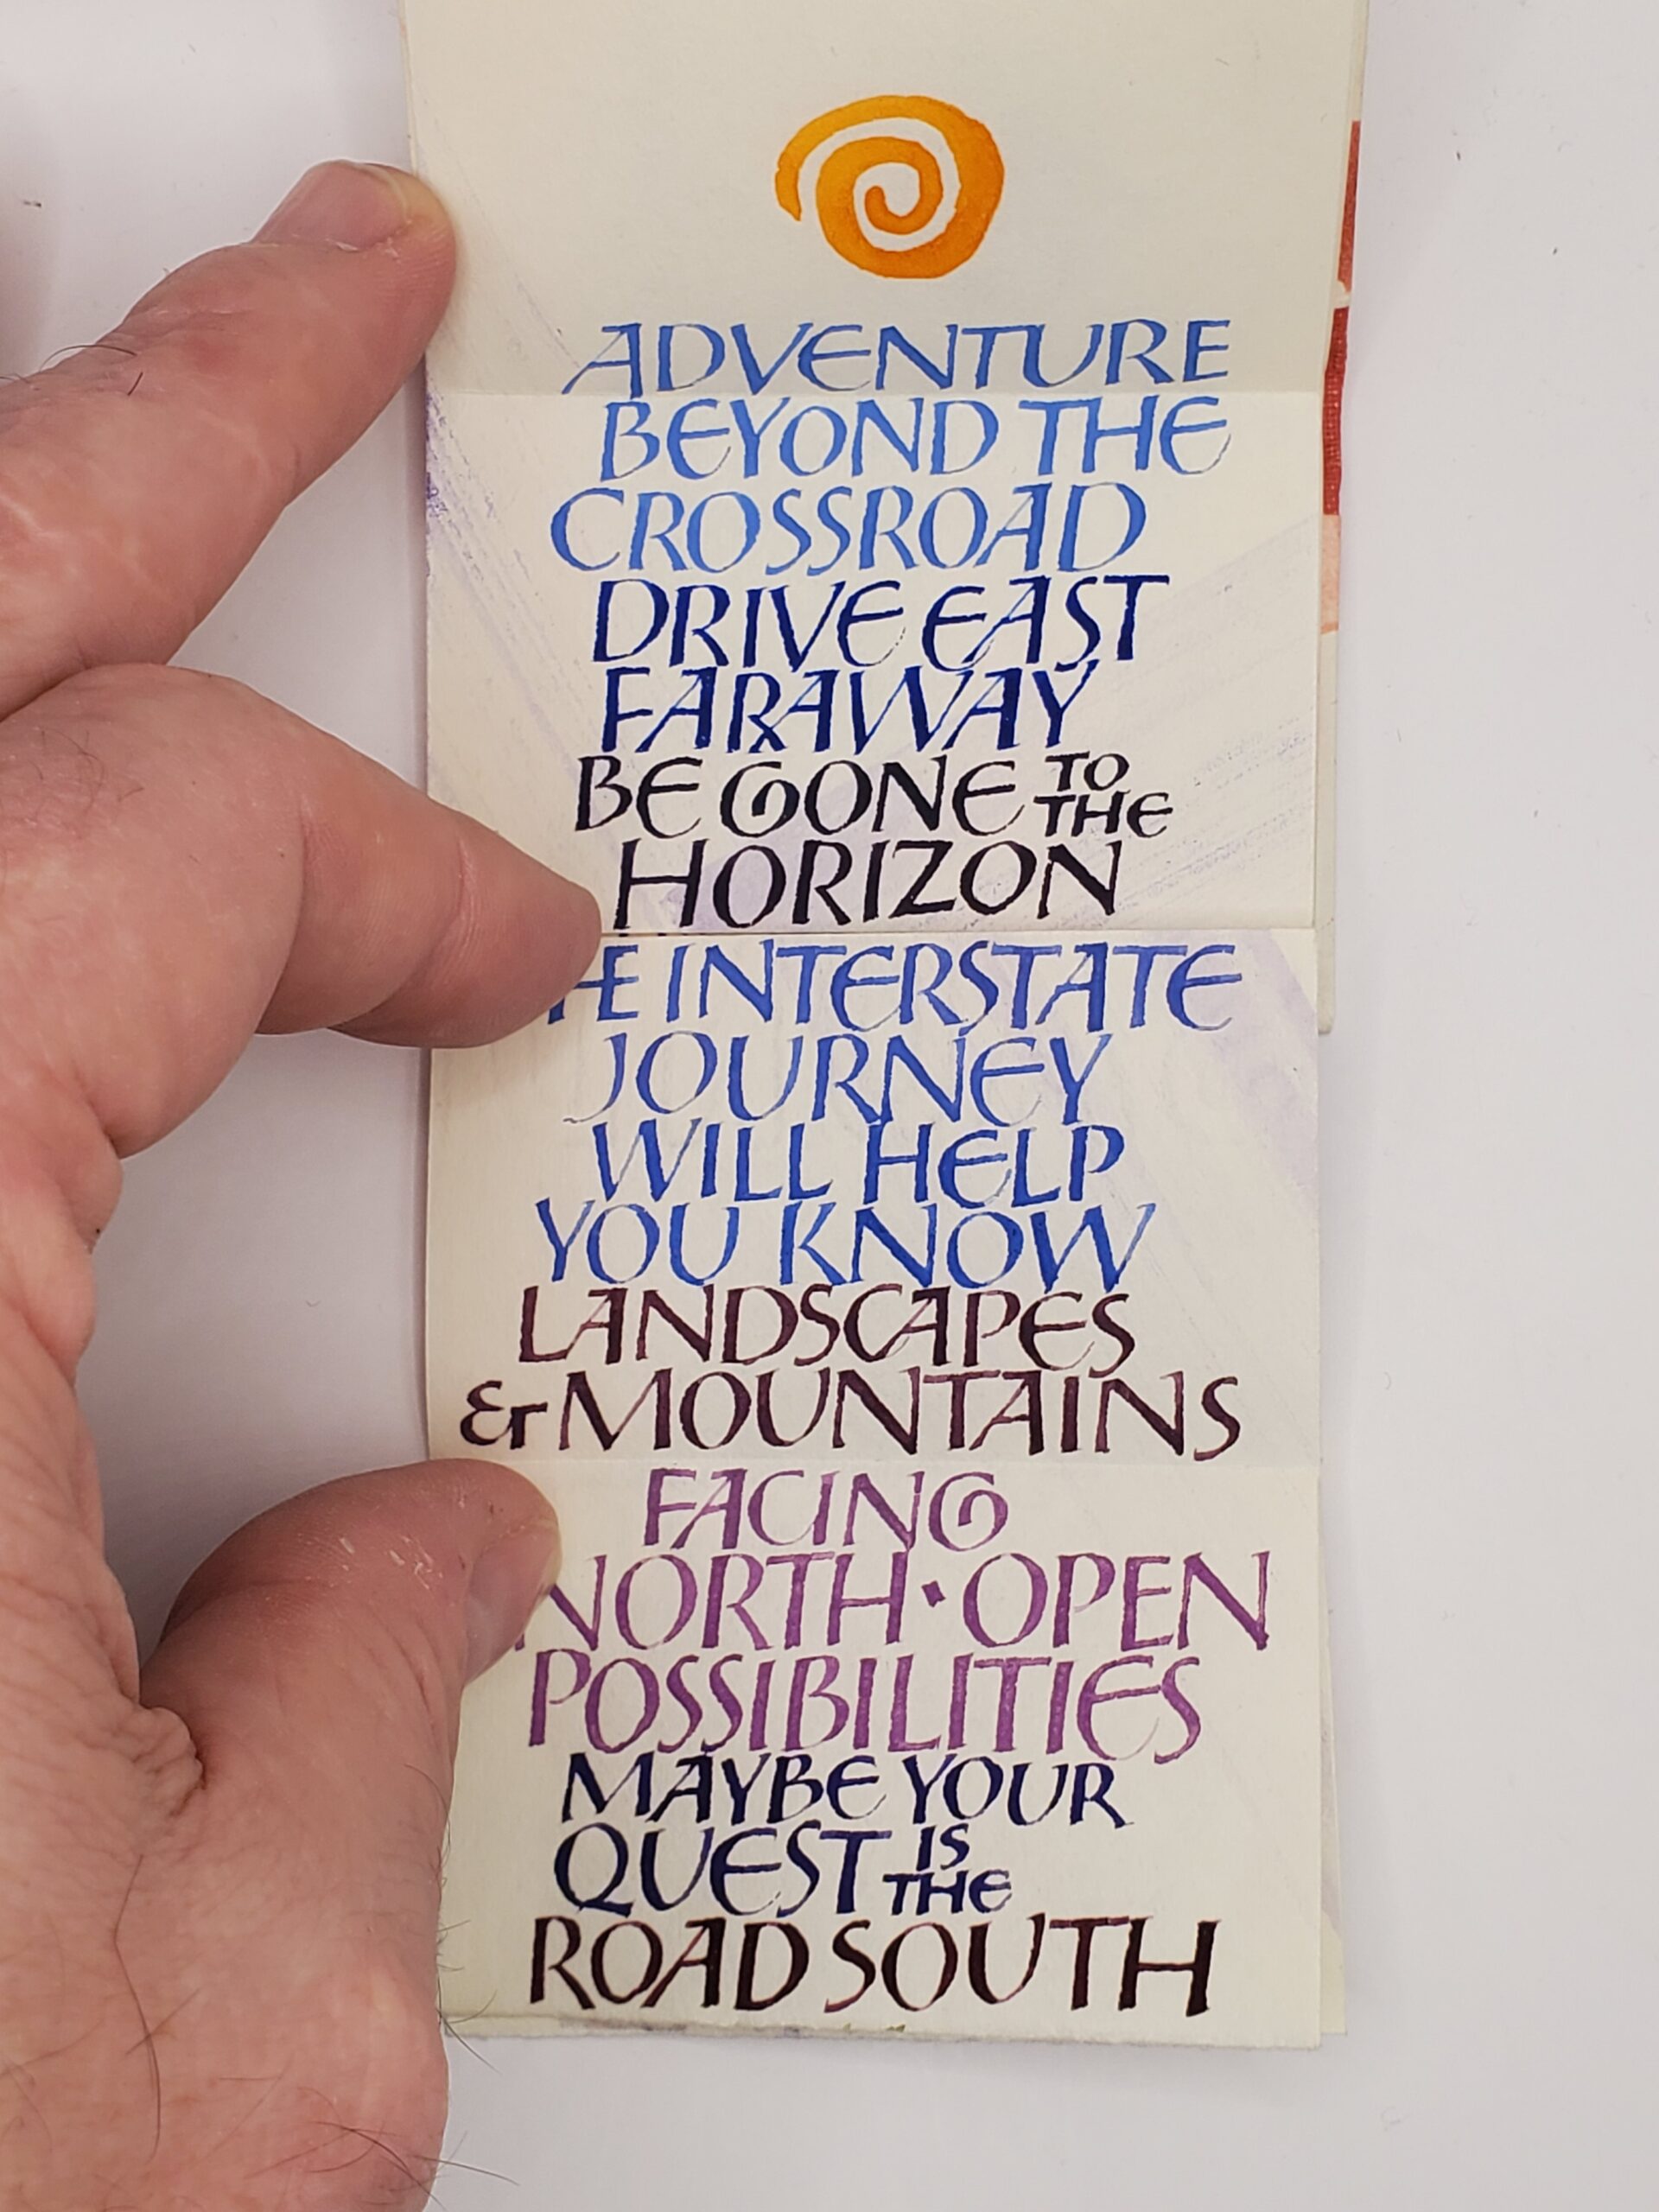 ADVENTURE
BEYOND THE
CROSSROAD
DRIVE EAST
FARAWAY
BE GONE TO THE
HORIZON
THE INTERSTATE
JOURNEY
WILL HELP
YOU KNOW
LANDSCAPES
& MOUNTAINS
FACING
NORTH · OPEN
POSSIBILITIES
MAYBE YOUR
QUEST IS THE
ROAD SOUTH